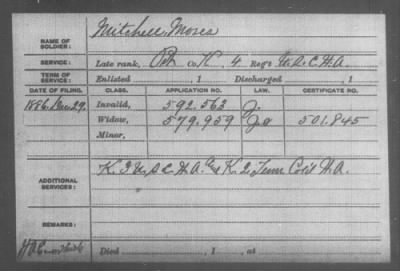 NAME OF SOLDIER: Mitchell, Moses
SERVICE: Late rank, Pvt Co. K, 4 Reg't U.S.C.H.A.
TERM OF SERVICE: Enlisted , 1 Discharged , 1
DATE OF FILING. CLASS. APPLICATION NO. LAW. CERTIFICATE NO.
1886. Dec 29. Invalid, 592.563 J.
Widow, 579.959 501.845
Minor,
ADDITIONAL SERVICES: K. 3 U.S.C.H.A. and K. 2 Tenn Col'd H.A.
REMARKS:
Died , 1 , at